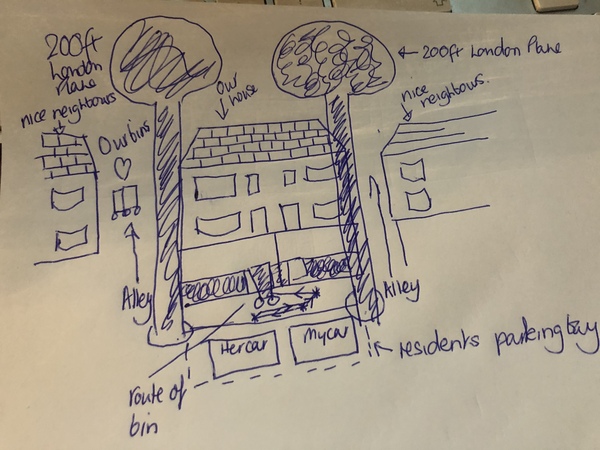 200ft
London
Plane
← 200ft London Plane
our
house
nice neighbours
nice
neighbours.
Our bins
Alley
Alley
Her car
My car
residents parking bay
route of
bin